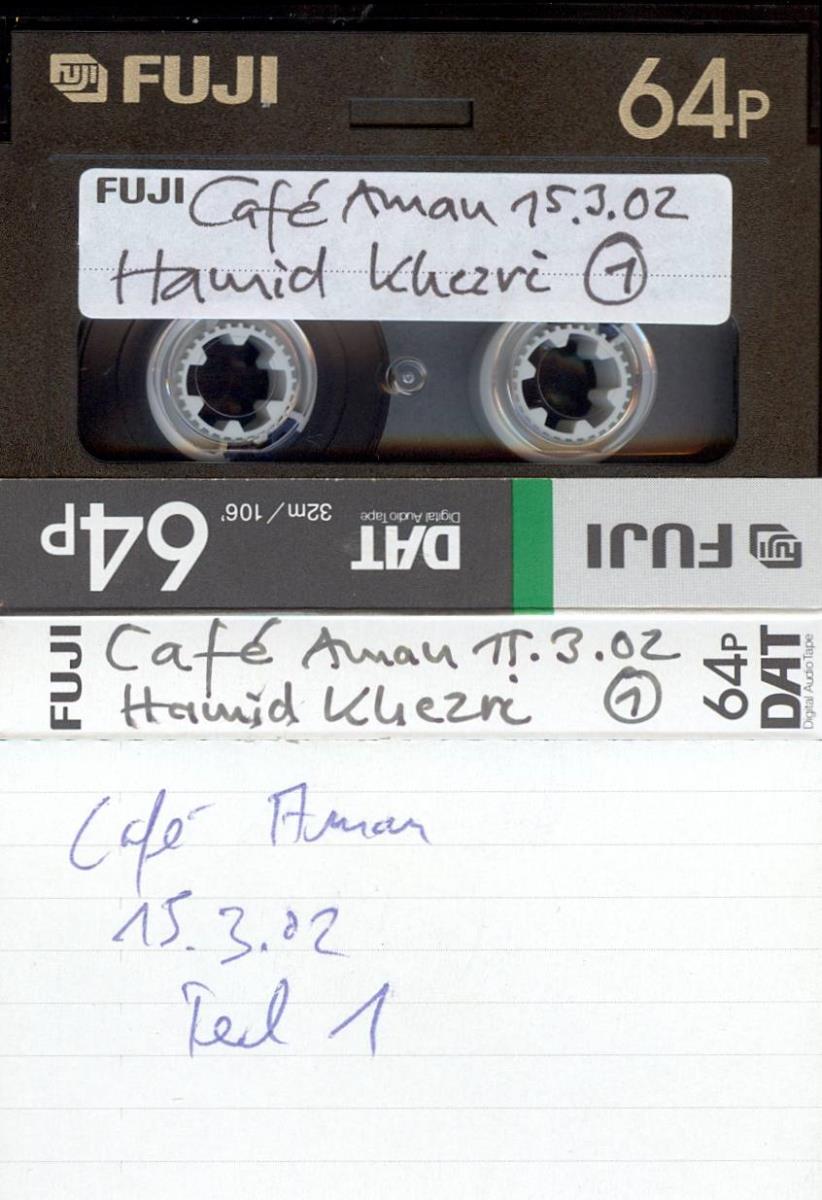 FUJI FUJI
64P
FUJI Café Aman 15.3.02
Hamid Khezri 1
64P
32m/106'
DAT
Digital Audio Tape
FUJI FUJI
FUJI
Café Aman 15.3.02
Hamid Khezri 1
64P
DAT
Digital Audio Tape
Café Aman
15.3.02
Teil 1